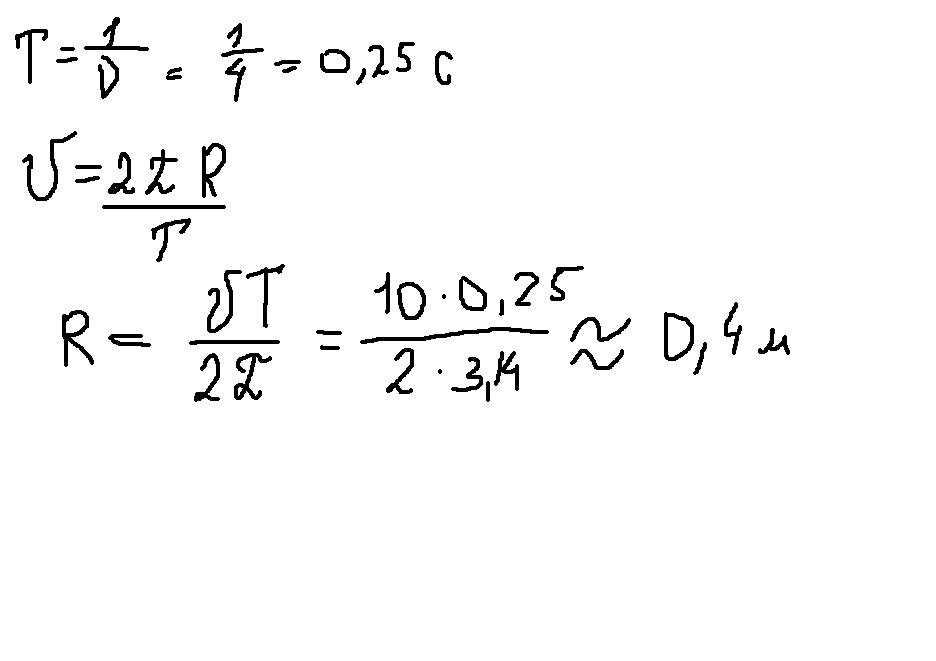 T = 1/ν = 1/4 = 0,25 с
υ = 2π R / T
R = υT / 2π = 10 · 0,25 / 2 · 3,14 ≈ 0,4 м